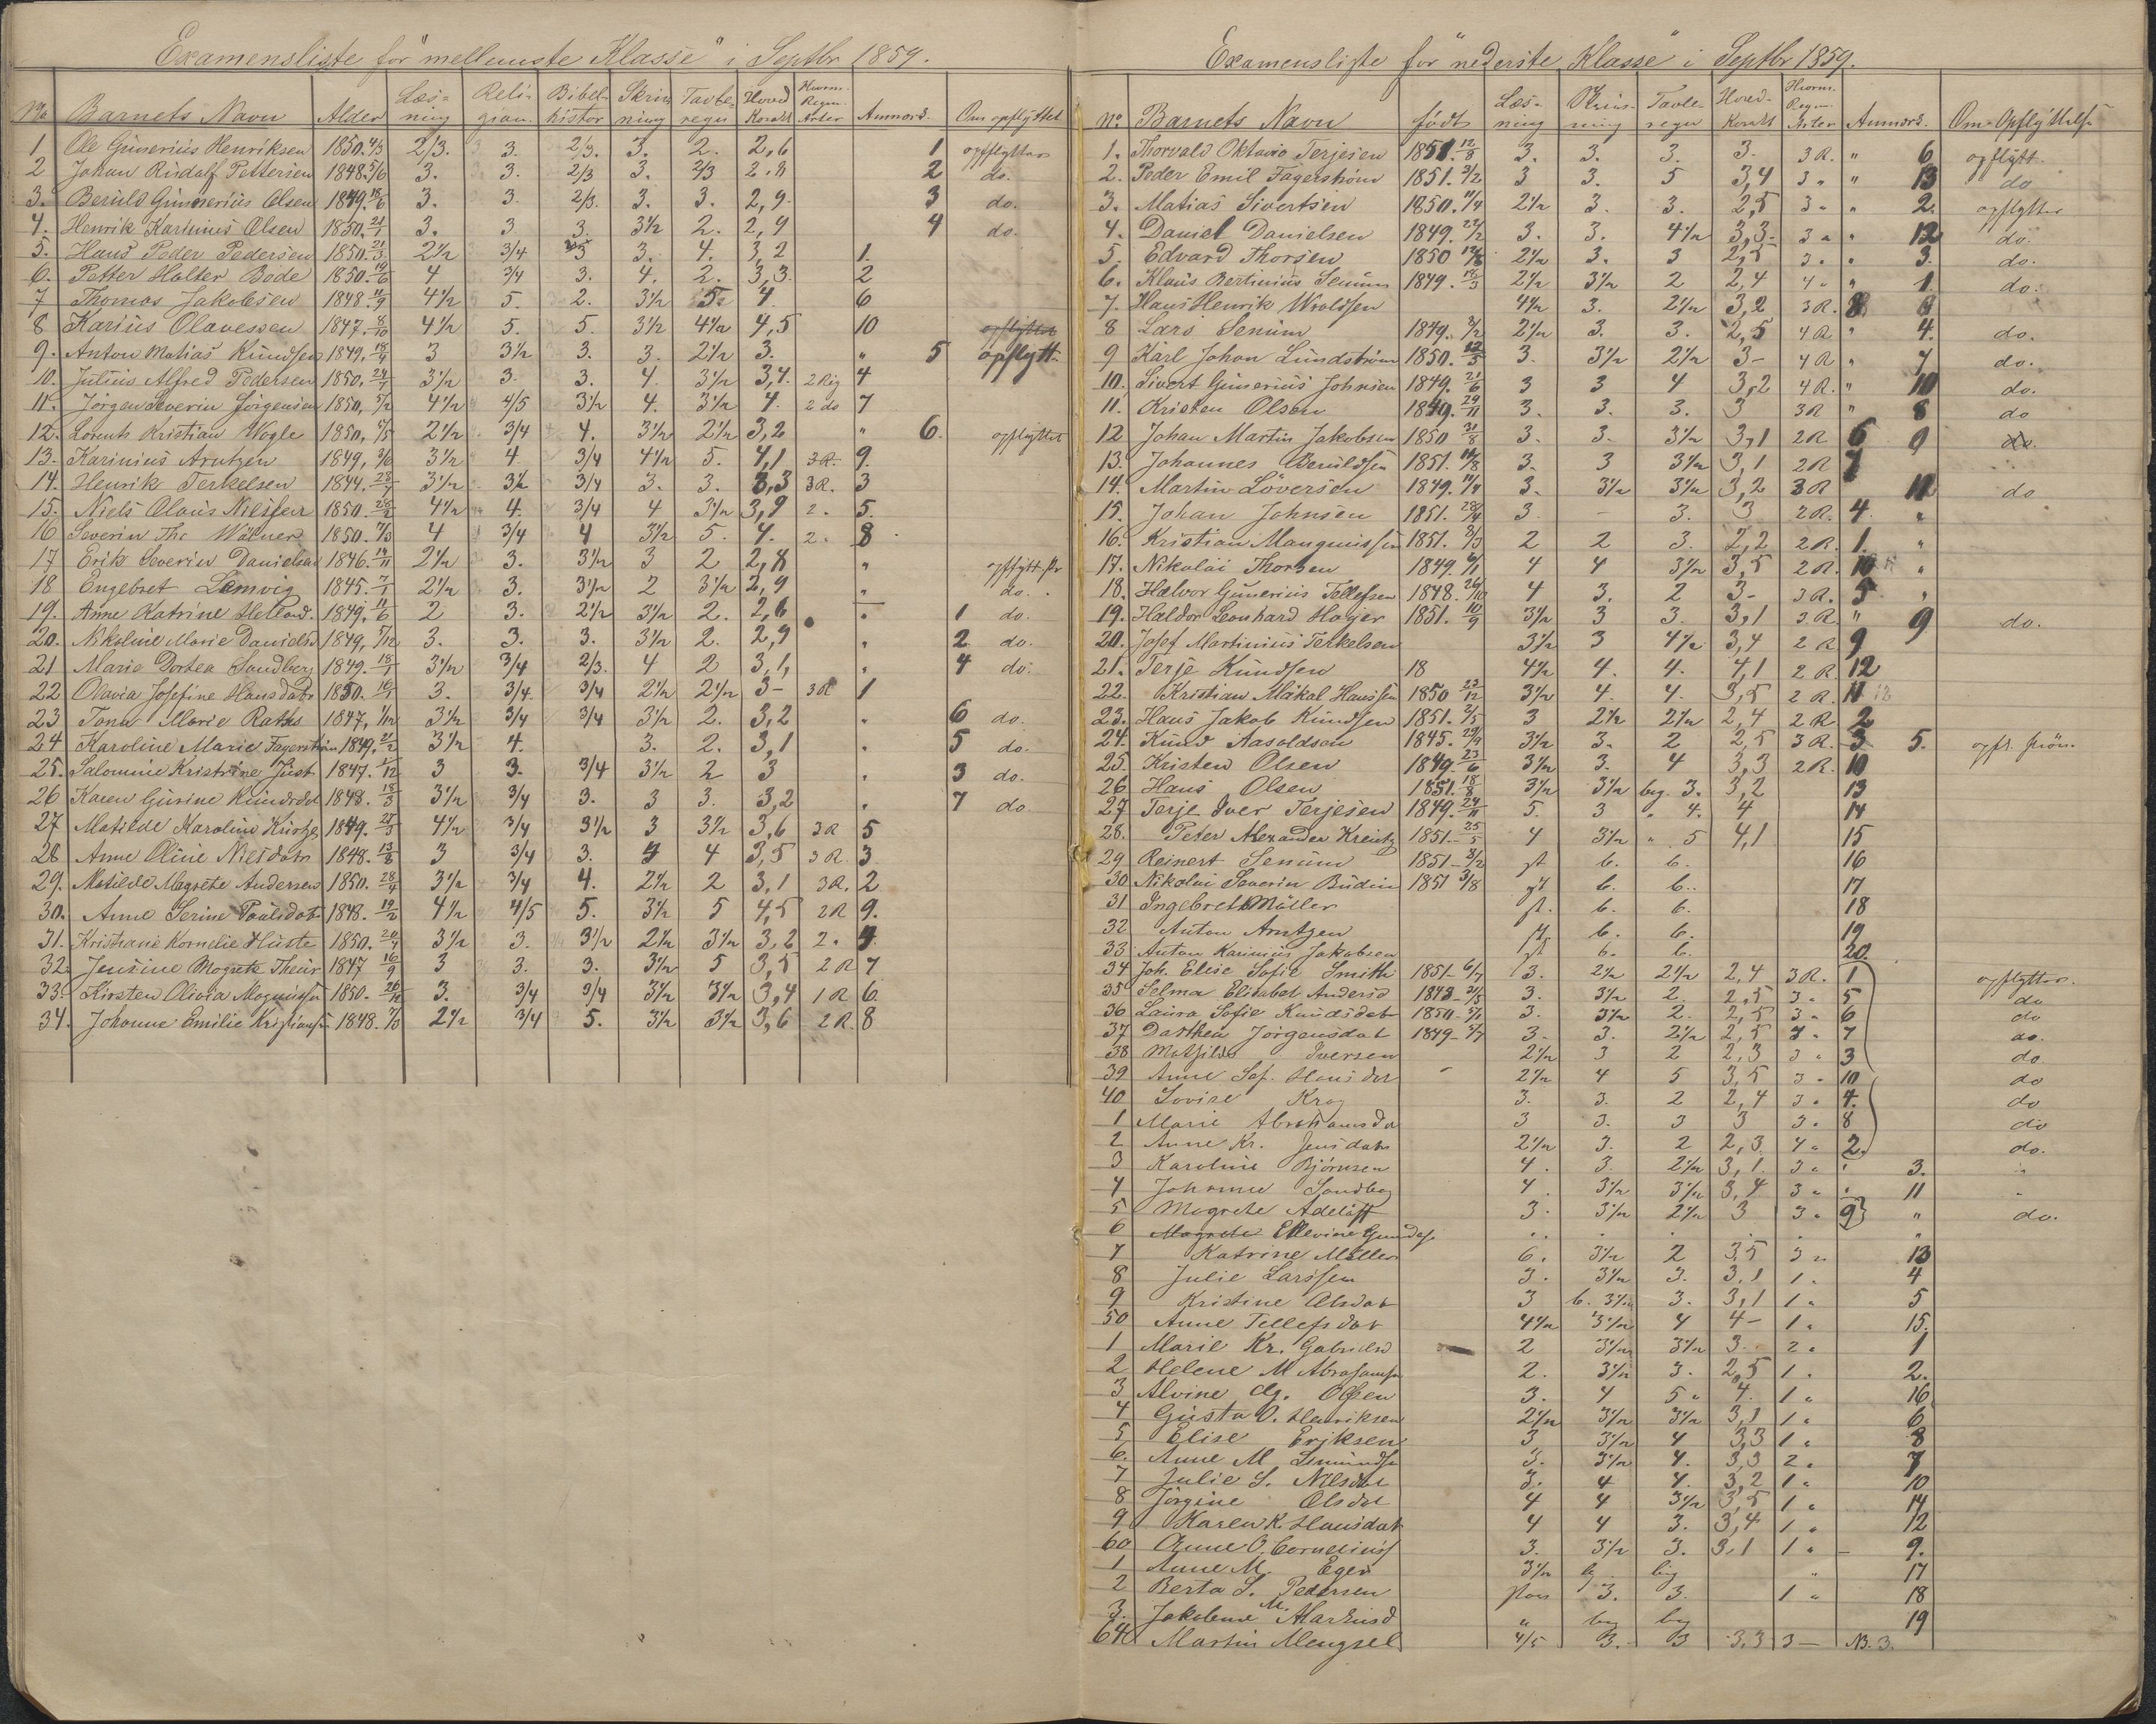 Examensliste for "mellemste Klasse" i Septbr 1859.
No Barnets Navn Alder Læsning Religion Bibelhistor Skrivning Tavleregn Hoved Karakt Hvorm. Regn. Arter Anmærk. Om opflyttet
1 Ole Gunerius Henriksen 1850. 4/3 2/3. 3. 2/3. 3. 2. 2,6 1 opflyttes
2 Johan Rudolf Pettersen 1848. 5/6 3. 3. 2/3 3. 2/3 2,8 2 do.
3. Beruld Gunnerius Olsen 1849. 18/6 3. 3. 2/3. 3. 3. 2,9. 3 do.
4. Henrik Karinius Olsen 1850. 21/1 3. 3 3. 3½ 2. 2,9 4 do.
5. Hans Peder Pedersen 1850. 21/3 2½ 3/4 3. 4. 3,2 1.
6. Petter Holter Bode 1850. 19/6 4 3/4 3. 4. 2. 3,3. 2
7 Thomas Jakobsen 1848. 11/9 4½ 5. 2. 3½ 5. 4. 6
8 Karius Olavessen 1847. 8/10 4½ 5. 5. 3½ 4½ 4,5 10
9. Anton Matias Kundsen 1849. 18/4 3 3½ 3. 3. 2½ 3. " 5 opflytt.
10. Julius Alfred Pedersen 1850. 24/7 3½ 3. 3. 4. 3½ 3,4. 2 Rig 4
11. Jörgen Severin Jörgensen 1850. 5/2 4½ 4/5 3½ 4. 3½ 4. 2 do 7
12. Lorents Kristian Vogle 1850. 2½ 3/4 4. 3½ 2½ 3,2 " 6. opflyttet
13. Karinius Arntzen 1849, 3/6 3½ 4 3/4 4½ 5. 4,1 3 R. 9.
14. Henrik Terkelsen 1844. 3½ 3½ 3/4 3. 3. 3,3 3 R. 3
15. Niels Olaus Nielsen 1850. 4½ 4. 3/4 4 3½ 3,9 2. 5.
16 Severin Thr Wärner 1850. 4 3/4 4 3½ 5. 4. 2. 8
17 Erik Severin Danielsen 1846. 14/11 2½ 3. 3½ 3 2 2,8 "
18 Engebret Lemvig 1845. 7/1 2½ 3. 3½ 2 3½ 2,9 " do.
19. Anne Katrine Helland. 1849. 11/6 2 3. 2½ 3½ 2. 2,6 1 do.
20. Nikoline Marie Danielsd 1849. 7/12 3. 3. 3. 3½ 2. 2,9 " 2 do.
21 Marie Dortea Sandberg 1849. 18/1 3½ 3/4 2/3. 4 2 3,1, " 4 do.
22 Olavia Josefine Hansdatr 1850. 3. 3/4 3/4 2½ 2½ 3- 3 R 1
23 Tona Marie Raths 1847. 3½ 3/4 3/4 3½ 2. 3,2 " 6 do.
24 Karoline Marie Fagerström 1849. 21/2 3½ 4. 3. 2. 3,1 " 5 do.
25. Salomine Kristine Just 1847. 3 3. 3/4 3½ 2 3 " 3 do.
26 Karen Gurine Knudsdat 1848. 18/3 3½ 3/4 3. 3 3. 3,2 " 7 do.
27 Matilde Karoline 1849. 4½ 3/4 3½ 3 3½ 3,6 3 R 5
28 Anne Oline Nilsdatr 1848. 13/8 3 3/4 3. 4 3,5 3 R. 3
29. Matilde Magrete Andersen 1850. 28/4 3½ 3/4 4. 2½ 2 3,1 3 R. 2
30. Anne Serine Poulsdatr 1848. 19/2 4½ 4/5 5. 3½ 5 4,5 2 R 9.
31. Kristiane Kornelie Huste 1850. 3½ 3. 3½ 2½ 3½ 3,2 2. 4
32. Jensine Magrete Theur 1847 16/9 3 3. 3. 3½ 5 3,5 2 R 7
33. Kirsten Olivia Magnussen 1850. 26/11 3. 3/4 3/4 3½ 3½ 3,4 1 R 6.
34. Johanne Emilie Kristiansn 1848. 2½ 3/4 5. 3½ 3½ 3,6 2 R. 8
Examensliste for "nederste Klasse" i Septbr 1859.
No. Barnets Navn födt Læsning Skrivning Tavleregn Hoved-Karakt Hvorm. Regn. Arter Anmærk. Om Opflyttelse
1. Thorvald Oktavio Terjesen 1851. 12/8 3. 3. 3. 3. 3 R. " 6 opflytt.
2. Peder Emil Fagerström 1851. 3/2 3 3. 5 3,4 3 " " 13 do
3. Matias Sivertsen 1850. 11/4 2½ 3. 3. 2,5 3 " " 2. opflyttes
4. Daniel Danielsen 1849. 22/2 3. 3. 4½ 3,3- 3 " " 12 do.
5. Edvard Thorsen 1850 2½ 3. 3 2,5 3. " 3. do.
6. Klaus Bertinius Senum 1849. 18/3 2½ 3½ 2 2,4 4 " " 1. do.
7. Hans Henrik Wroldsen 4½ 3. 2½ 3,2 3 R. 8
8 Lars Senum 1849. 3/2 2½ 3. 3. 2,5 4 R " 4. do.
9 Karl Johan Lundström 1850. 12/5 3. 3½ 2½ 3- 4 R " 7 do.
10. Sivert Gunerius Johnsen 1849. 21/6 3 3 4 3,2 4 R. " 10 do.
11. Kristen Olsen 1849. 29/11 3. 3. 3. 3 3 R " 8 do
12 Johan Martin Jakobsen 1850 31/8 3. 3. 3½ 3,1 2 R 6 9 do.
13. Johannes Beruldsen 1851. 14/8 3. 3 3½ 3,1 2 R 7
14. Martin Löversen 1849. 11/4 3. 3½ 3½ 3,2 3 R 11 do
15. Johan Johnsen 1851. 28/4 3 - 3. 3 2 R. 4. "
16. Kristian Manguussen 1851. 3/3 2 2 3. 2,2 2 R. 1. "
17. Nikolai Thorsen 1849. 6/1 4 4 3½ 3,5 2 R. 10 "
18. Halvor Gunerius Tellefsen 1848. 26/10 4 3. 2 3- 3 R. 5 "
19. Haldor Leonhard Höyer 1851. 10/9 3½ 3 3. 3,1 3 R. " 9 do.
20. Josef Martinius Terkelsen 3½ 3 4½ 3,4 2 R 9
21. Terje Kundsen 18 4½ 4. 4. 4,1 2 R. 12
22. Kristian Mäkal Hanssen 1850 23/12 3½ 4. 4. 3,5 2 R. 11
23. Hans Jakob Kundsen 1851. 2/5 3 2½ 2½ 2,4 2 R 2
24. Knud Aasoldsen 1845. 29/9 3½ 3. 2 2,5 3 R. 3 5.
25. Kristen Olsen 1849. 23/6 3½ 3. 4 3,3 2 R. 10
26 Hans Olsen 1851. 18/8 3½ 3½ beg. 3. 3,2 13
27 Terje Iver Terjesen 1849. 24/11 5. 3 " 4. 4 14
28. Peter Alexander Kreutz 1851. 25/5 4 3½ " 5 4,1 15
29 Reinert Senum 1851- 3/2 b. b. 16
30 Nikolai Severin Budin 1851 3/8 b. b. 17
31 Ingebret Möller b. b. 18
32 Anton Arntzen b. b. 19
33 Anton Karinius Jakobsen b. b. 20.
34 Joh. Elise Sofie Smith 1851- 6/7 3. 2½ 2½ 2,4 3 R. 1 opflyttes.
35 Selma Elisabet Andersd 1848- 2/5 3. 3½ 2. 2,5 3 " 5 do
36 Laura Sofie Knudsdat 1850- 3. 3½ 2. 2,5 3 " 6 do
37 Dorthea Jörgensdat 1849- 3. 3. 2½ 2,5 4 " 7 do.
38 Mathilde Iversen 2½ 3 2 2,3 3 " 3 do.
39 Anne Sof. Hansdat 2½ 4 5 3,5 3 " 10 do
40 Lovise Krog 3. 3. 2 2,4 3 " 4. do
1 Marie Abrahamsda 3 3. 3 3 3 " 8 do
2 Anne Kr. Jensdatr 2½ 3. 2 2,3 4 " 2. do.
3 Karoline Björnsen 4. 3. 2½ 3,1. 3 " " 3.
4 Johanne Sandberg 4. 3½ 3½ 3,4 3 " " 11
5 Magrete Adeläff 3. 3½ 2½ 3 3 " 9 " do.
6 Magrete Ellevine
7 Katrine Müller 6. 3½ 2 3,5 3 " 13
8 Julie Larssen 3. 3½ 3. 3,1 1. 4
9 Kristine Olsdat 3 b. 3½ 3. 3,1 1 " 5
50 Anne Tellefsdat 4½ 3½ 4 4- 1 " 15.
1 Marie Kr. Gabrielsd 2 3½ 3½ 3. 2. 1
2 Helene M Abrahamsn 2. 3½ 3. 2,5 1. 2.
3 Alvine Ag. Olsen 3. 4 5 " 4. 1 " 16
4 Gusta O. Henriksen 2½ 3½ 3½ 3,1 1 " 6
5 Elise Eriksen 3 3½ 4 3,3 1 " 8
6. Anne M 3. 3½ 4. 3,3 2. 7
7 Julie S. Nilsdat 3. 4 4. 3,2 1 " 10
8 Jörgine Olsdat 4 4 3½ 3,5 1 " 14
9 Karen K. Hansdat 4 4 3. 3,4 1 " 12
60 Anne O. Corneliuss 3. 3½ 3. 3,1 1 " - 9.
1 Anne M. Eger 3½ 17
2 Berta S. Pedersen 3. 3. 1 " 18
3. Jakobine M. Markusd " beg beg 19
64 Martin Mengsel 4/5 3. 3 3,3 3 — NB. 3.